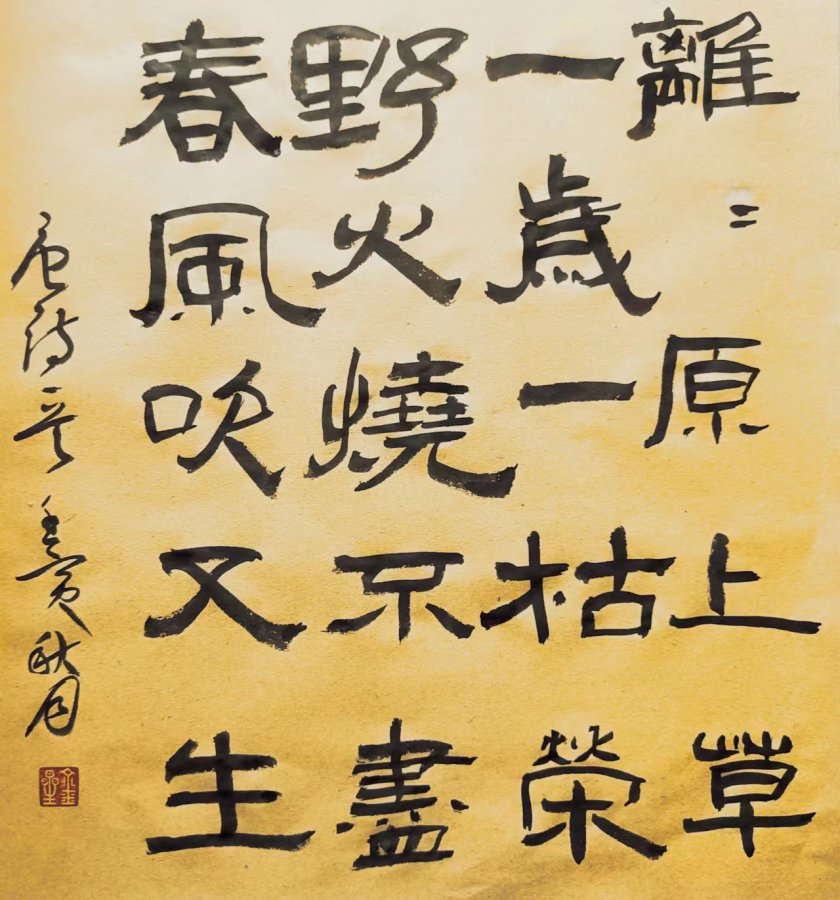 離〻原上草
一歲一枯榮
野火燒不盡
春風吹又生
唐詩一首 壬寅秋月